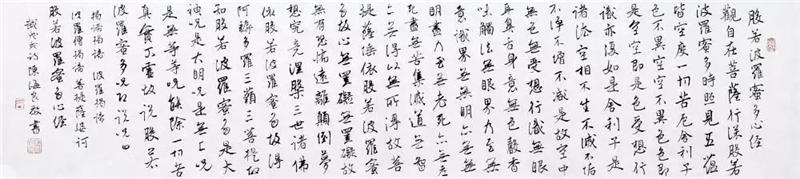 般若波羅蜜多心經
觀自在菩薩行深般若
波羅蜜多時照見五蘊
皆空度一切苦厄舍利子
色不異空空不異色色即
是空空即是色受想行
識亦復如是舍利子是
諸法空相不生不滅不垢
不淨不增不減是故空中
無色無受想行識無眼
耳鼻舌身意無色聲香
味觸法無眼界乃至無
意識界無無明亦無無
明盡乃至無老死亦無老
死盡無苦集滅道無智
亦無得以無所得故菩
提薩埵依般若波羅蜜
多故心無罣礙無罣礙故
無有恐怖遠離顛倒夢
想究竟涅槃三世諸佛
依般若波羅蜜多故得
阿耨多羅三藐三菩提故
知般若波羅蜜多是大
神咒是大明咒是無上咒
是無等等咒能除一切苦
真實不虛故說般若
波羅蜜多咒即說咒曰
揭諦揭諦 波羅揭諦
波羅僧揭諦 菩提薩婆訶
般若波羅蜜多心經
陳海良敬書